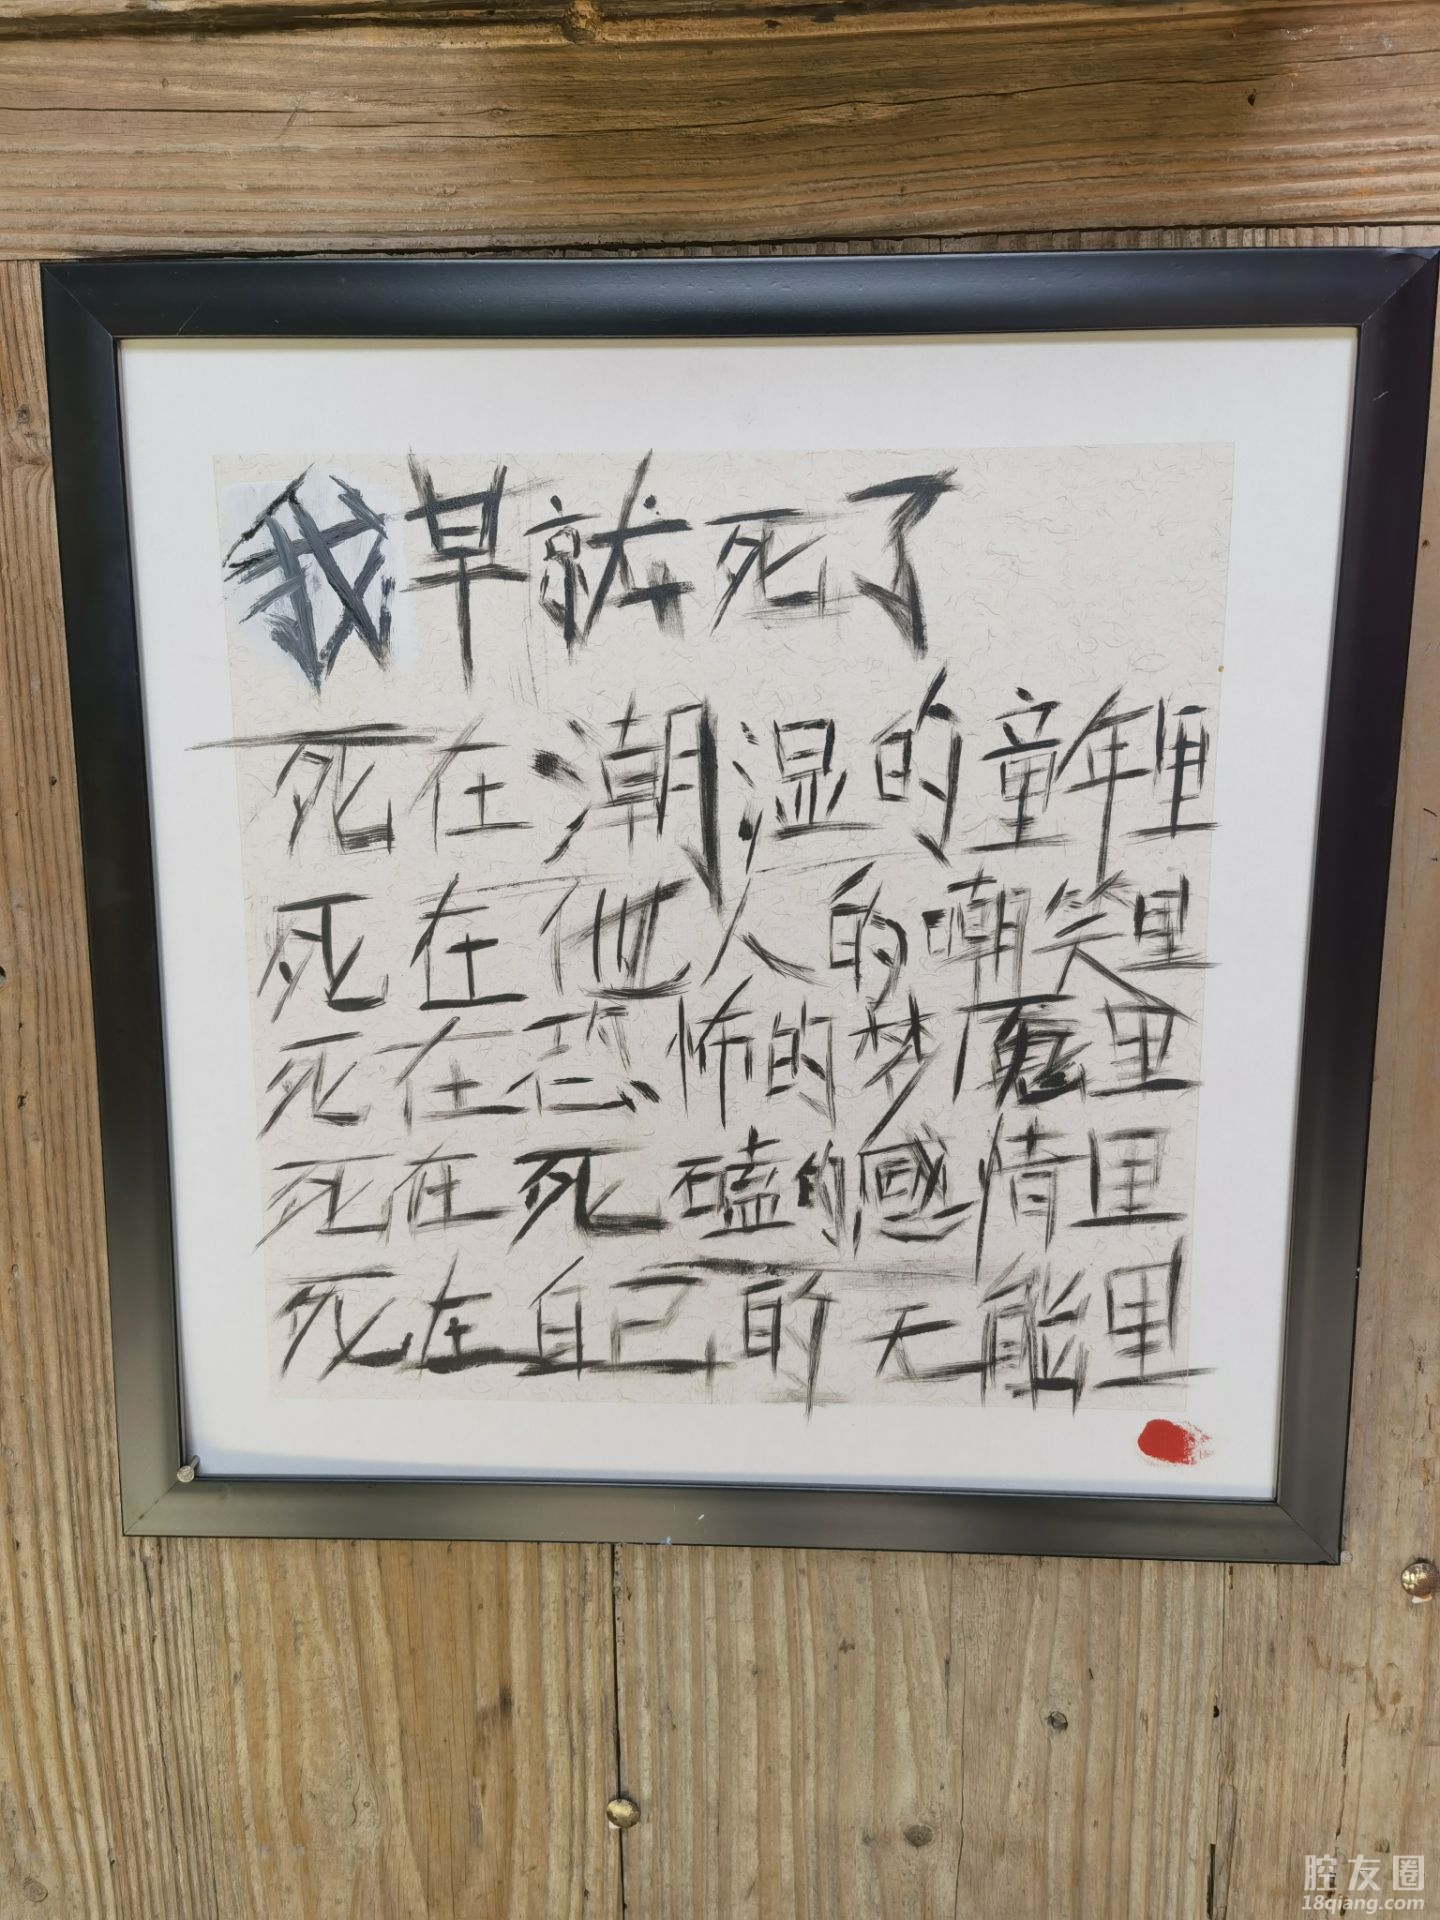 我早就死了
死在潮湿的童年里
死在他人的嘲笑里
死在恐怖的梦魇里
死在死磕的感情里
死在自己的无能里
腔友圈
18qiang.com